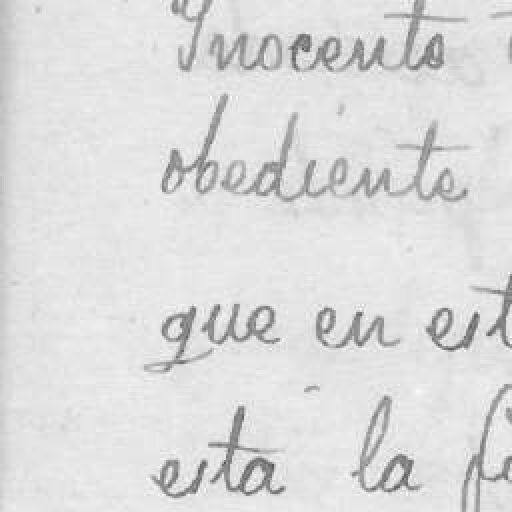 Inocente
obediente
que en est
esta la